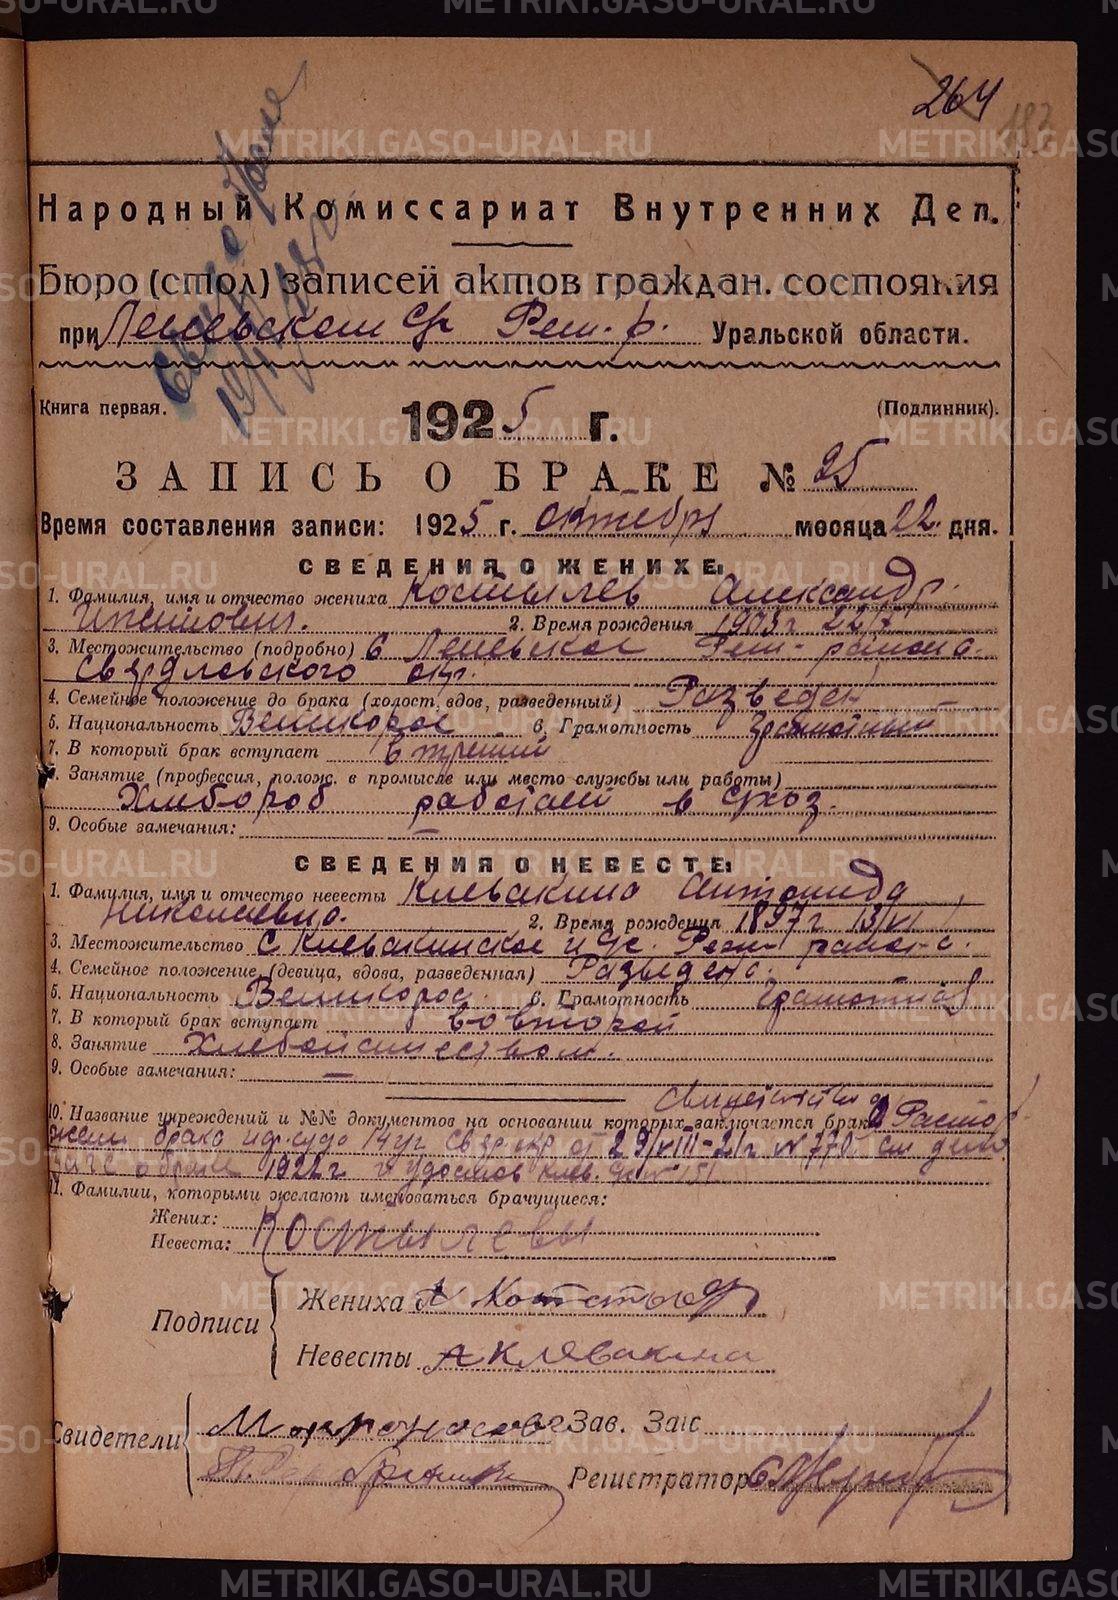 264
183
Народный Комиссариат Внутренних Дел.
Бюро (стол) записей актов граждан. состояния
при Реж. р. Уральской области.
Книга первая. 1925 г. (Подлинник).
ЗАПИСЬ О БРАКЕ № 25
Время составления записи: 1925 г. октября месяца 22 дня.
СВЕДЕНИЯ О ЖЕНИХЕ:
1. Фамилия, имя и отчество жениха Костылев Александр
2. Время рождения 1903 г
3. Местожительство (подробно) С Реж. района
Свердловского окр.
4. Семейное положение до брака (холост, вдов, разведенный) Разведен
5. Национальность Великорос 6. Грамотность Грамотный
7. В который брак вступает в третий
8. Занятие (профессия, полож. в промысле или место службы или работы)
Хлебороб работает в с/хоз.
9. Особые замечания: —
СВЕДЕНИЯ О НЕВЕСТЕ:
1. Фамилия, имя и отчество невесты Клевакина
Николаевна. 2. Время рождения 1897 г 13/VI
3. Местожительство С Клевакинское Реж. района.
4. Семейное положение (девица, вдова, разведенная) Разведена.
5. Национальность Великорос. 6. Грамотность Грамотная
7. В который брак вступает во второй
8. Занятие Хлебопашеством.
9. Особые замечания: —
10. Название учреждений и №№ документов на основании которых заключается брак
брака нар. суда 14 уч Свер окр от 29/VIII-21г № 770
о браке 1922 г
11. Фамилии, которыми желают именоваться брачущиеся:
Жених:
Невеста: Костылевы
Подписи
Жениха А
Невесты А Клевакина
Свидетели
Зав. Загс
Регистратор
METRIKI.GASO-URAL.RU